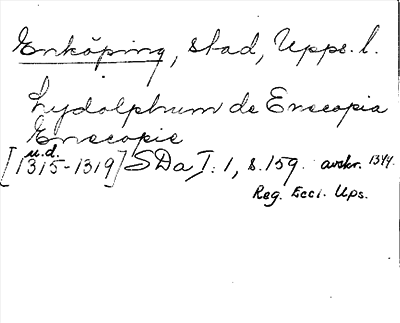 Enköping, stad, Upps. l.
Lydolphum de Enecopia
Enecopie
u.d.
[1315-1319] SDa I:1, s.159. avskr. 1344.
Reg. Eccl. Ups.